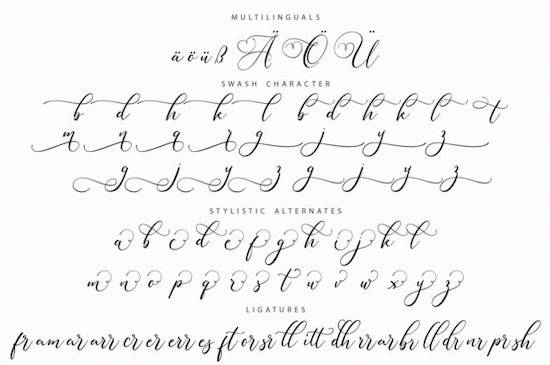 MULTILINGUALS
ä ö ü ß Ä Ö Ü
SWASH CHARACTER
b d h k l b d h k l t
m n q r g j y z
g j y z g j y z
STYLISTIC ALTERNATES
a b c d e f g h i j k l
m n o p q r s t u v w x y z
LIGATURES
fr am ar arr cr er err es ft or sr ll itt dh rr ar br ll dr nr pr sh